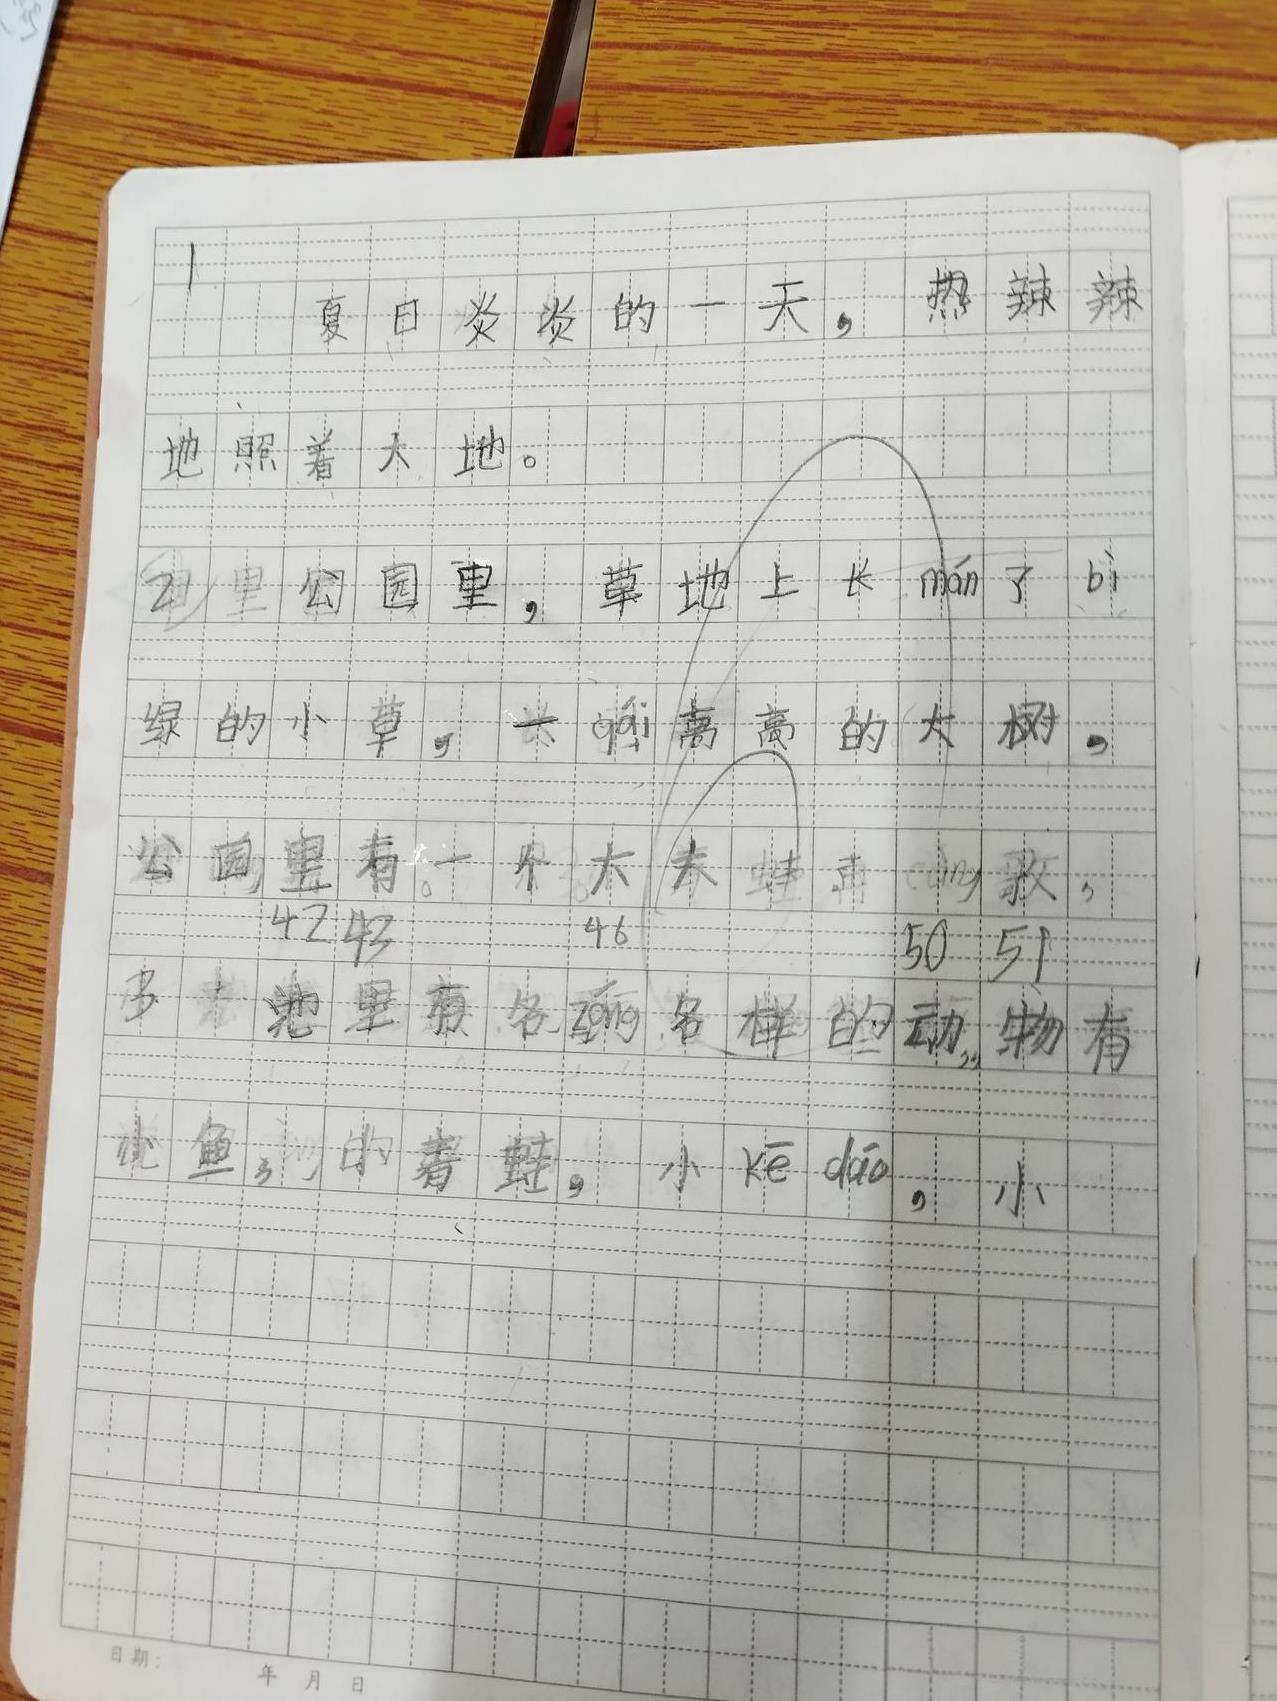 1
夏日炎炎的一天，热辣辣
地照着大地。
21里公园里，草地上长mǎn了bì
绿的小草，一 高高的大树，
公园里有一个大 蛙 歌，
42 43 46 50 51
3 池里有各zǒng各样的动物有
小鱼， 的青蛙，小kē dǒo，小
日期： 年 月 日